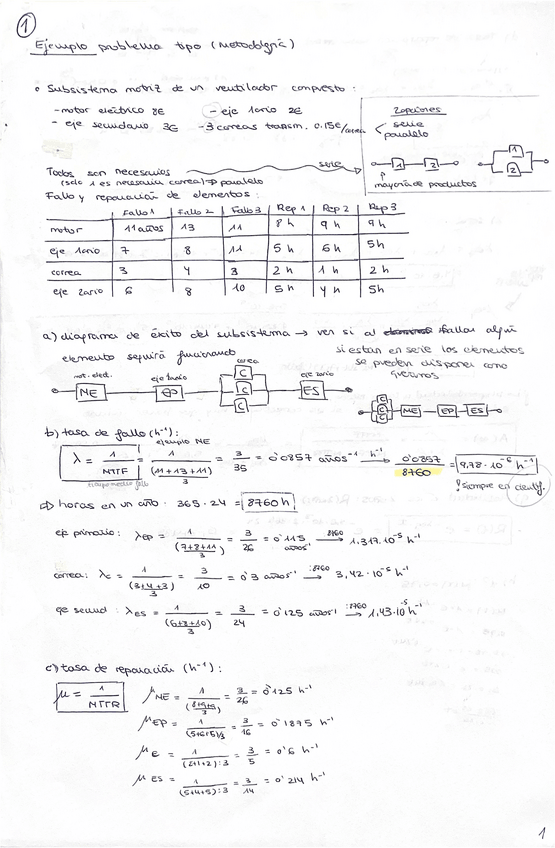 1
Ejemplo problema tipo (metodología)
• Subsistema motriz de un ventilador compuesto:
- motor eléctrico 8€ - eje 1ario 2€
- eje secundario 3€ - 3 correas transm. 0.15€/correa
2 opciones
serie
paralelo
1 2
1
2
mayoría de productos
Todos son necesarios serie
(solo 1 es necesaria correa) → paralelo
Fallo y reparación de elementos:
Fallo 1 Fallo 2 Fallo 3 Rep 1 Rep 2 Rep 3
motor 11 años 13 11 8 h 9 h 9 h
eje 1ario 7 8 11 5 h 6 h 5 h
correa 3 4 3 2 h 1 h 2 h
eje 2ario 6 8 10 5 h 4 h 5 h
a) diagrama de éxito del subsistema → ver si al fallar algún
elemento seguirá funcionando
si están en serie los elementos
se pueden disponer como
queramos
mot. elect. eje 1ario correa eje 2ario
ME EP C C C ES
C C C ME EP ES
b) tasa de fallo (h⁻¹):
ejemplo ME
λ = 1/MTTF = 1/((11+13+11)/3) = 3/35 = 0'0857 años⁻¹ → h⁻¹ 0'0857/8760 = 9,78·10⁻⁶ h⁻¹
tiempo medio fallo
! siempre en científ.
horas en un año · 365·24 = 8760 h
eje primario: λEP = 1/((7+8+11)/3) = 3/26 = 0'115 años⁻¹ :8760 → 1.317·10⁻⁵ h⁻¹
correa: λc = 1/((3+4+3)/3) = 3/10 = 0'3 años⁻¹ :8760 → 3,42·10⁻⁵ h⁻¹
eje secund: λES = 1/((6+8+10)/3) = 3/24 = 0'125 años⁻¹ :8760 → 1,43·10⁻⁵ h⁻¹
c) tasa de reparación (h⁻¹):
μ = 1/MTTR
μME = 1/((8+9+9)/3) = 3/26 = 0'125 h⁻¹
μEP = 1/((5+6+5)/3) = 3/16 = 0'1875 h⁻¹
μc = 1/((2+1+2):3) = 3/5 = 0'6 h⁻¹
μES = 1/((5+4+5):3) = 3/14 = 0'214 h⁻¹
1